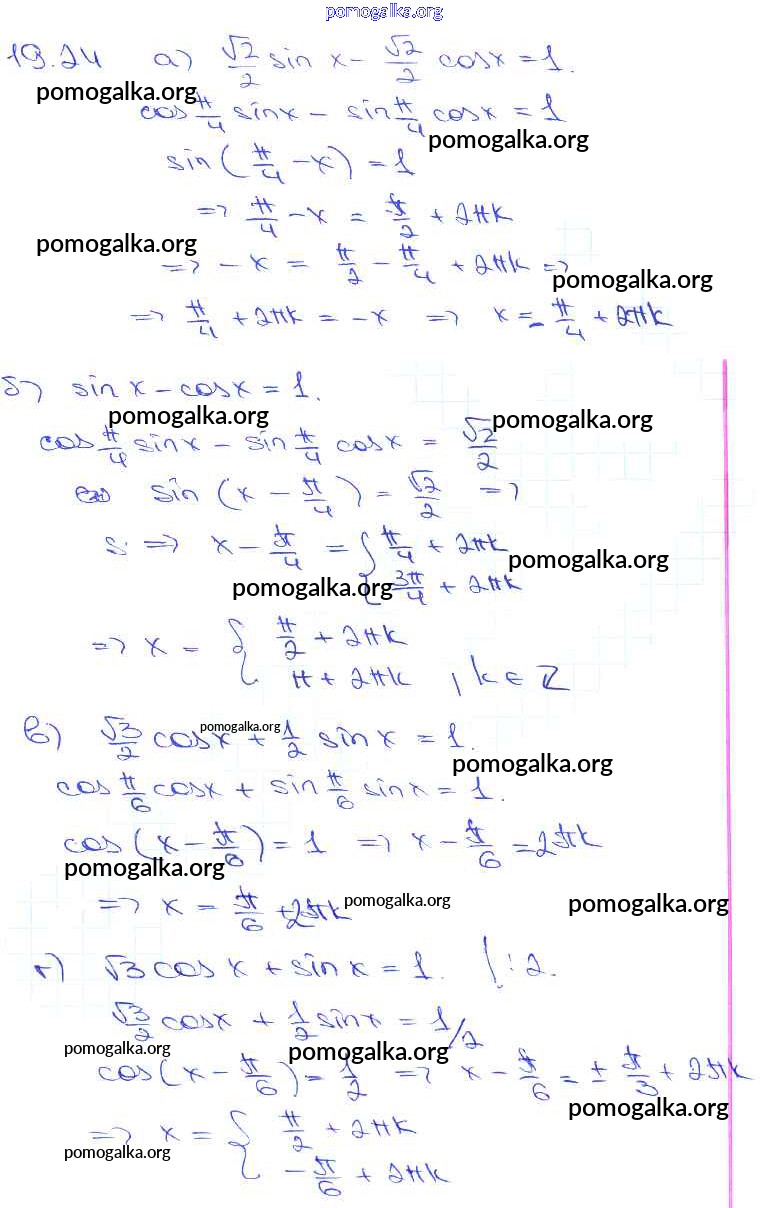 pomogalka.org
19.24 а) √2/2 sin x - √2/2 cosx = 1.
pomogalka.org
cos π/4 sinx - sin π/4 cosx = 1
pomogalka.org
sin(π/4 - x) = 1
=> π/4 - x = π/2 + 2πk
pomogalka.org
=> - x = π/2 - π/4 + 2πk =>
pomogalka.org
=> π/4 + 2πk = -x => x = - π/4 + 2πk
б) sin x - cosx = 1.
pomogalka.org pomogalka.org
cos π/4 sinx - sin π/4 cosx = √2/2
sin (x - π/4) = √2/2 =>
=> x - π/4 = { π/4 + 2πk
pomogalka.org
3π/4 + 2πk
pomogalka.org
=> x = { π/2 + 2πk
π + 2πk , k ∈ Z
pomogalka.org
в) √3/2 cosx + 1/2 sin x = 1.
pomogalka.org
cos π/6 cosx + sin π/6 sinx = 1.
cos (x - π/6) = 1 => x - π/6 = 2πk
pomogalka.org
=> x = π/6 + 2πk
pomogalka.org pomogalka.org
г) √3 cos x + sin x = 1. | : 2.
√3/2 cosx + 1/2 sinx = 1/2
pomogalka.org pomogalka.org
cos(x - π/6) = 1/2 => x - π/6 = ± π/3 + 2πk
pomogalka.org
=> x = { π/2 + 2πk
pomogalka.org
- π/6 + 2πk